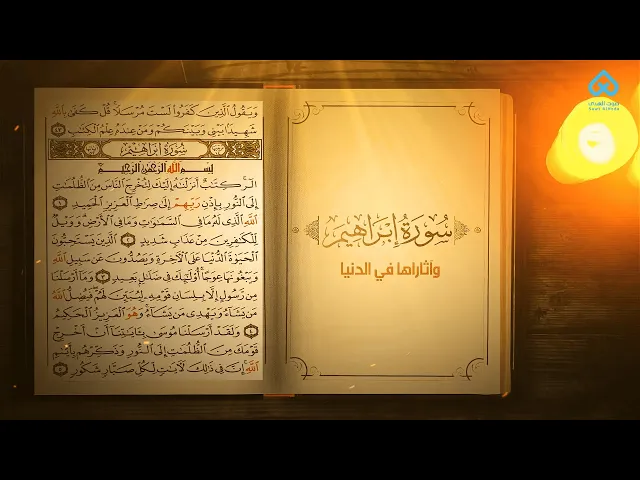 وَيَقُولُ الَّذِينَ كَفَرُوا لَسْتَ مُرْسَلًا ۚ قُلْ كَفَىٰ بِاللَّهِ
شَهِيدًا بَيْنِي وَبَيْنَكُمْ وَمَنْ عِندَهُ عِلْمُ الْكِتَابِ ٤٣
سُورَةُ إِبْرَاهِيمَ
بِسْمِ اللَّهِ الرَّحْمَٰنِ الرَّحِيمِ
الٓر ۚ كِتَابٌ أَنزَلْنَاهُ إِلَيْكَ لِتُخْرِجَ النَّاسَ مِنَ الظُّلُمَاتِ
إِلَى النُّورِ بِإِذْنِ رَبِّهِمْ إِلَىٰ صِرَاطِ الْعَزِيزِ الْحَمِيدِ ١
اللَّهِ الَّذِي لَهُ مَا فِي السَّمَاوَاتِ وَمَا فِي الْأَرْضِ ۗ وَوَيْلٌ
لِّلْكَافِرِينَ مِنْ عَذَابٍ شَدِيدٍ ٢ الَّذِينَ يَسْتَحِبُّونَ
الْحَيَاةَ الدُّنْيَا عَلَى الْآخِرَةِ وَيَصُدُّونَ عَن سَبِيلِ اللَّهِ
وَيَبْغُونَهَا عِوَجًا ۚ أُولَٰئِكَ فِي ضَلَالٍ بَعِيدٍ ٣ وَمَا أَرْسَلْنَا
مِن رَّسُولٍ إِلَّا بِلِسَانِ قَوْمِهِ لِيُبَيِّنَ لَهُمْ ۖ فَيُضِلُّ اللَّهُ
مَن يَشَاءُ وَيَهْدِي مَن يَشَاءُ ۚ وَهُوَ الْعَزِيزُ الْحَكِيمُ
٤ وَلَقَدْ أَرْسَلْنَا مُوسَىٰ بِآيَاتِنَا أَنْ أَخْرِجْ
قَوْمَكَ مِنَ الظُّلُمَاتِ إِلَى النُّورِ وَذَكِّرْهُم بِأَيَّامِ
اللَّهِ ۚ إِنَّ فِي ذَٰلِكَ لَآيَاتٍ لِّكُلِّ صَبَّارٍ شَكُورٍ ٥
سُورَةُ إِبْرَاهِيمَ
وآثاراها في الدنيا
صوت الهدى
Sout AlHoda